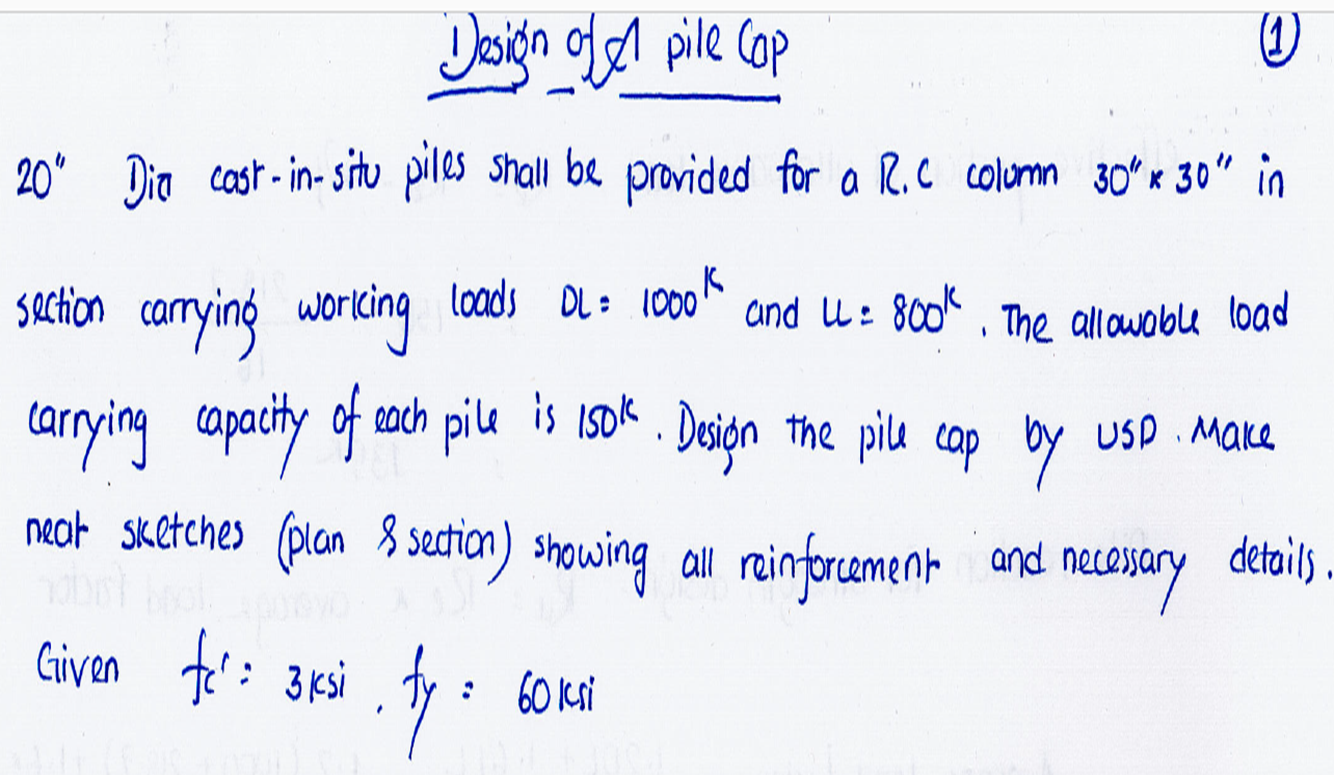 Design of A pile Cap
(1)
20" Dia cast-in-situ piles shall be provided for a R.C column 30" x 30" in
section carrying working loads DL = 1000K and LL = 800K. The allowable load
carrying capacity of each pile is 150K. Design the pile cap by USD. Make
neat sketches (plan & section) showing all reinforcement and necessary details.
Given fc' = 3 ksi, fy = 60 ksi